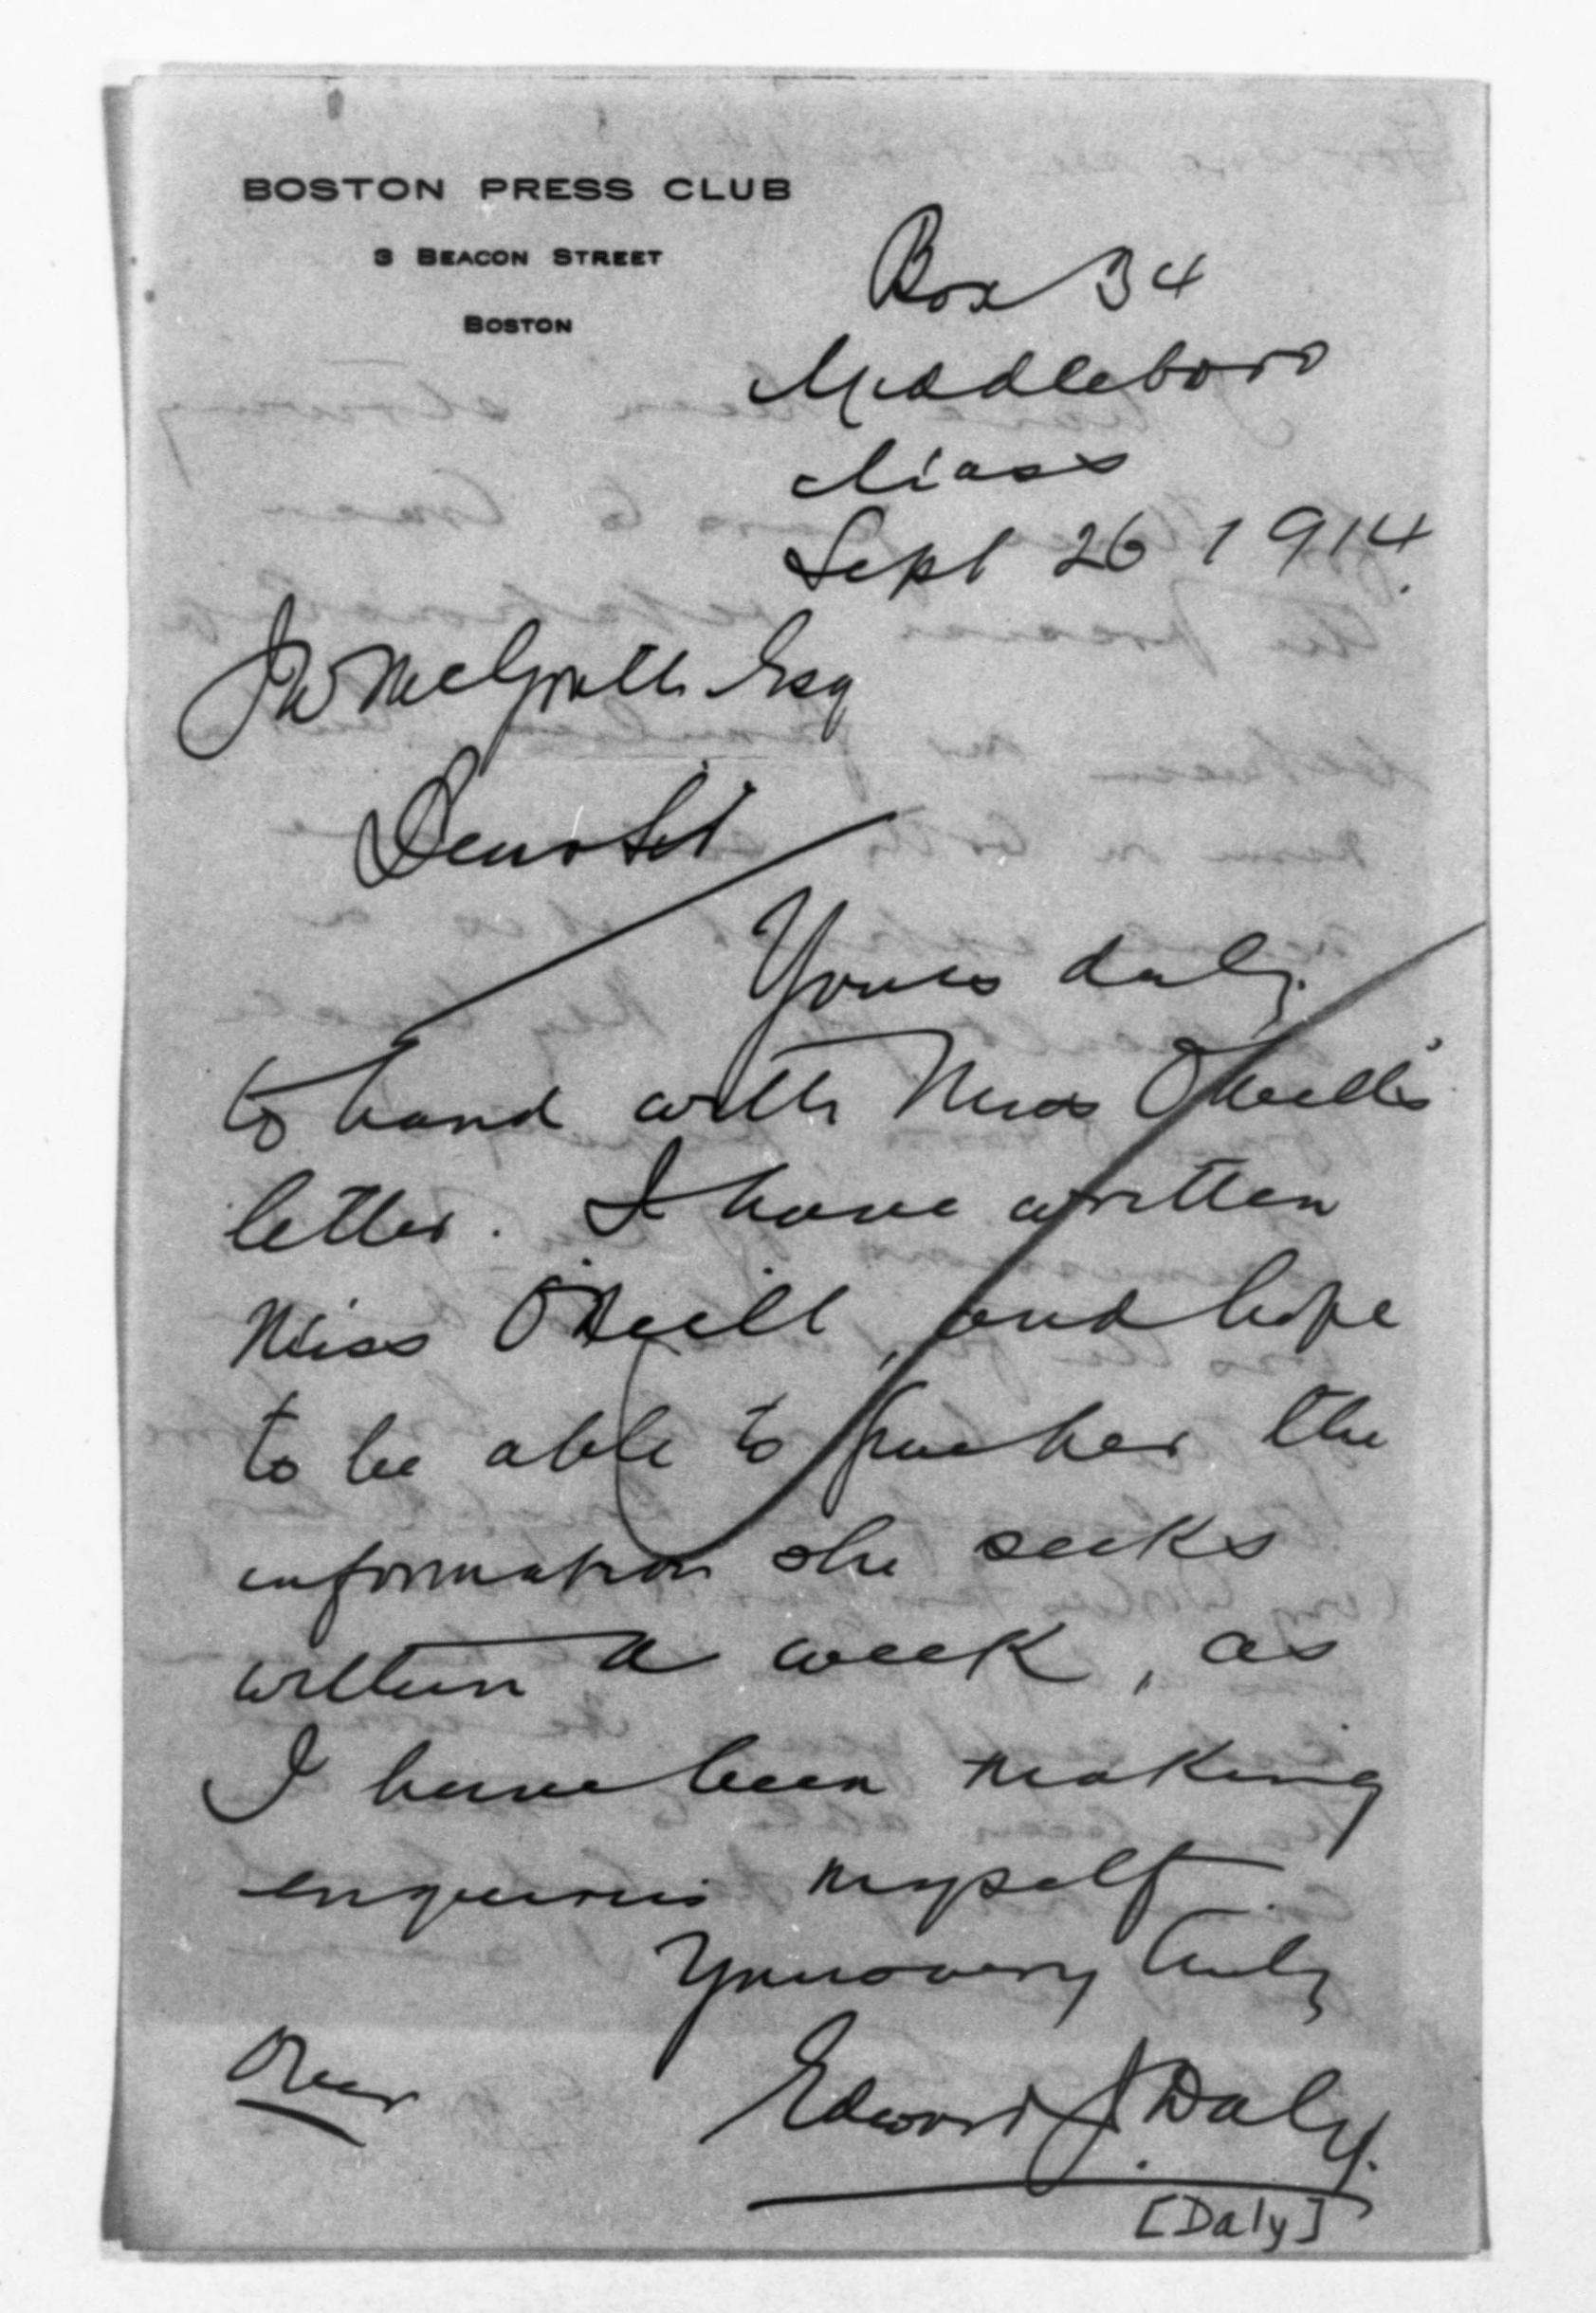 BOSTON PRESS CLUB
3 BEACON STREET
BOSTON
Box 34
Middleboro
Mass
Sept 26 1914.
J W McGrath Esq
Dear Sir
Yours duly
to hand with Miss O'Neill's
letter. I have written
Miss O'Neill, and hope
to be able to give her the
information she seeks
within a week, as
I have been making
enquiries myself
Yours very truly
Edward J. Daly.
Over
[Daly]